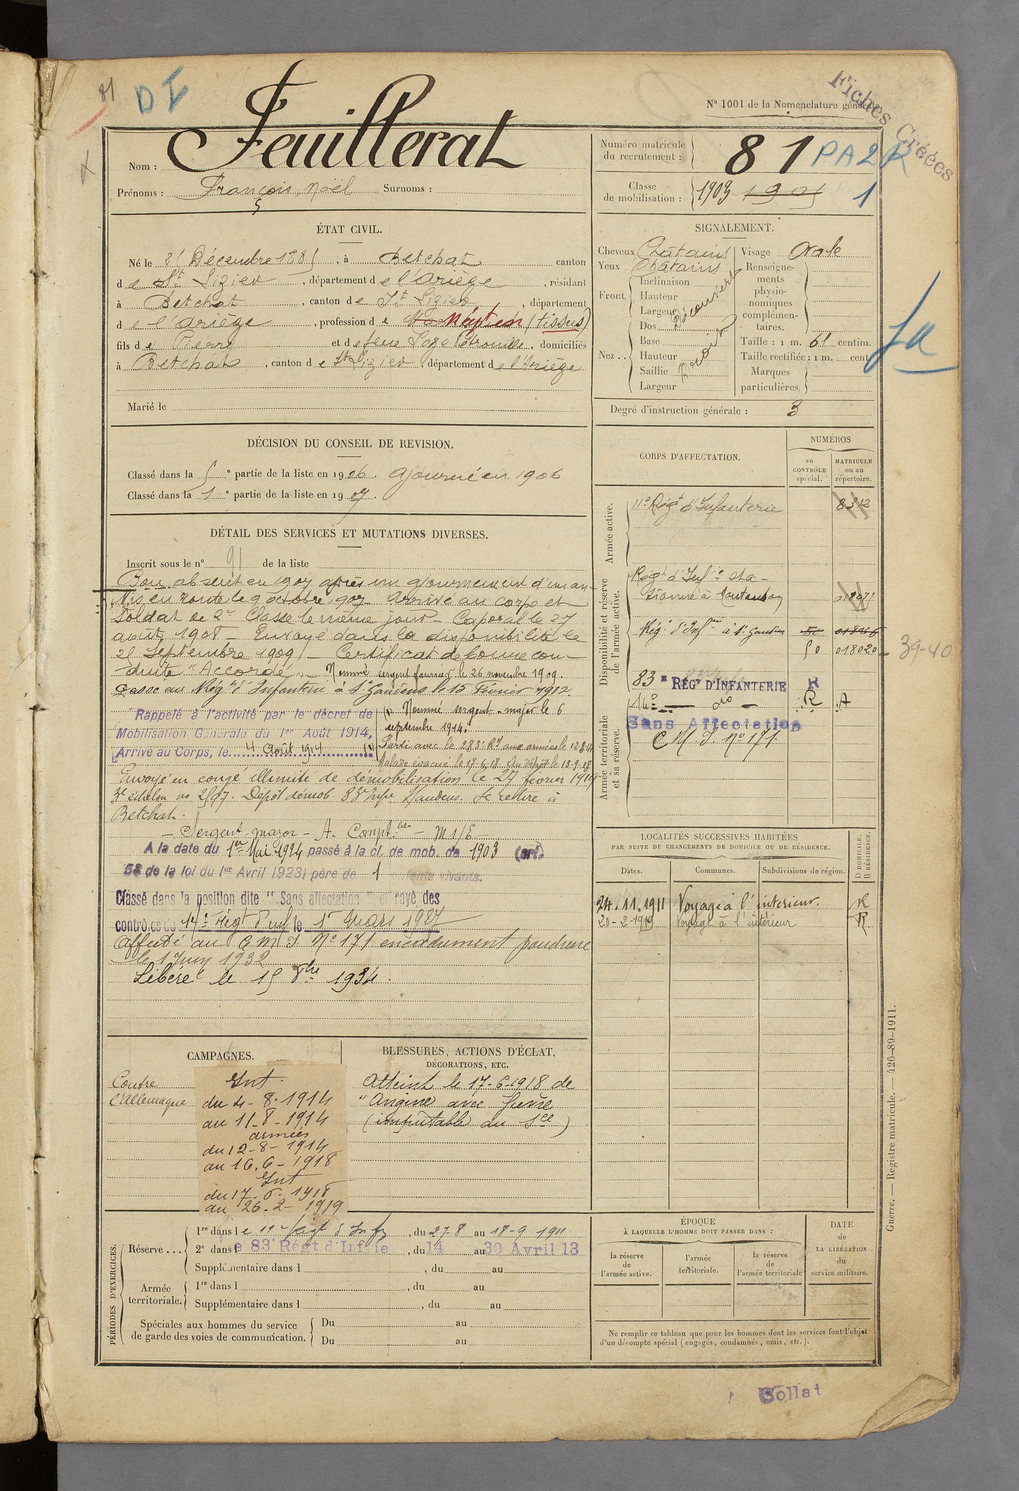 81
DI
N° 1001 de la Nomenclature générale
Fiches Créées
Nom : Feuillerat
Prénoms : François, Noël Surnoms :
Numéro matricule du recrutement : 81 PA2R
Classe de mobilisation : 1903 1905 1
ÉTAT CIVIL.
Né le 25 Décembre 1885, à Betchat canton
de St Lizier, département de l'Ariège, résidant
à Betchat, canton de St Lizier, département
de l'Ariège, profession de (tissus)
fils de Pierre et de feue domiciliés
à Betchat, canton de St Lizier, département de l'Ariège
Marié le
SIGNALEMENT.
Cheveux Châtains Visage Ovale
Yeux Châtains Renseignements physionomiques complémentaires.
Front. Inclinaison Hauteur Largeur Découvert
Nez.. Dos Base Hauteur Saillie Largeur Droit
Taille : 1 m. 61 centim.
Taille rectifiée : 1 m. cent
Marques particulières.
Degré d'instruction générale : 3
fa
DÉCISION DU CONSEIL DE REVISION.
Classé dans la 5e partie de la liste en 1906. ajourné en 1906
Classé dans la 1e partie de la liste en 1907.
DÉTAIL DES SERVICES ET MUTATIONS DIVERSES.
Inscrit sous le n° 91 de la liste
Bon absent en 1907 après un ajournement d'un an-
Mis en route le 9 octobre 907. Arrivé au corps et
Soldat de 2e Classe le même jour. Caporal le 27
août 1908 - Envoyé dans la disponibilité le
25 Septembre 1909 - Certificat de bonne con-
duite "Accordé" - Nommé sergent fourrier le 26 novembre 1909.
Passé au Régt d'Infanterie à St Gaudens le 15 Février 1912.
Rappelé à l'activité par le décret de
Mobilisation Générale du 1er Août 1914,
Arrivé au Corps, le 4 août 1914
Nommé sergent-major le 6
septembre 1914.
Parti avec le 283e RI aux armées le 12-8-14
Malade évacué le 17-6-18. Au dépôt le
Envoyé en congé illimité de démobilisation le 27 février 1919
3e échelon no 2197. Dépôt démob. 83e Infie St Gaudens. Se retire à
Betchat.
- Sergent major - A. Comptble - M1/E -
A la date du 1er Mai 1924 passé à la cl. de mob. de 1903 (art.
58 de la loi du 1er Avril 1923) père de 1 enfants vivants.
Classé dans la position dite "Sans affectation" et rayé des
contrôles du 14e Régt d'inf le 1er Mars 1927
Affecté au C M I N° 171 encadrement poudrerie
le 1 Juin 1932
Libéré le 15 8bre 1934.
CORPS D'AFFECTATION.
NUMÉROS
au CONTRÔLE spécial.
MATRICULE ou au répertoire.
Armée active.
11e Régt d'Infanterie 8312
Disponibilité et réserve de l'armée active.
Régt d'Infie sta-
tionné à Montauban
Régt d'Infie à St Gaudens
50 018020 39-40
83e RÉGt D'INFANTERIE R
Armée territoriale et sa réserve.
14e do R A
Sans Affectation
C M I. N° 171
LOCALITÉS SUCCESSIVES HABITÉES
PAR SUITE DE CHANGEMENTS DE DOMICILE OU DE RÉSIDENCE.
Dates. Communes. Subdivisions de région. D. DOMICILE. R. RÉSIDENCE.
24.11.1911 Voyage à l'intérieur. R
20-2-1919 Voyage à l'intérieur R
CAMPAGNES.
Contre
l'Allemagne
Int.
du 4-8-1914
au 11-8-1914
armées
du 12-8-1914
au 16-6-1918
Int
du 17-6-1918
au 26-2-1919
BLESSURES, ACTIONS D'ÉCLAT,
DÉCORATIONS, ETC.
Atteint le 17-6-1918 de
"Angine avec fièvre
(imputable au Sce)
PÉRIODES D'EXERCICES.
Réserve...
1re dans le 11e Régt d'Infie, du 27 8 au 18-9 1911
2e dans le 83e Régt d'Infie, du 14 au 30 Avril 13
Supplémentaire dans l , du au
Armée territoriale.
1re dans l , du au
Supplémentaire dans l , du au
Spéciales aux hommes du service
de garde des voies de communication.
Du au
Du au
ÉPOQUE
À LAQUELLE L'HOMME DOIT PASSER DANS :
la réserve de l'armée active.
l'armée territoriale.
la réserve de l'armée territoriale
DATE de LA LIBÉRATION du service militaire.
Ne remplir ce tableau que pour les hommes dont les services font l'objet
d'un décompte spécial (engagés, condamnés, omis, etc.).
Guerre. — Registre matricule. — 426-89-1911.
Collat